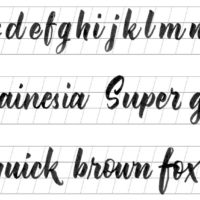 c d e f g h i j k l m n
ainesia Super g
quick brown fox